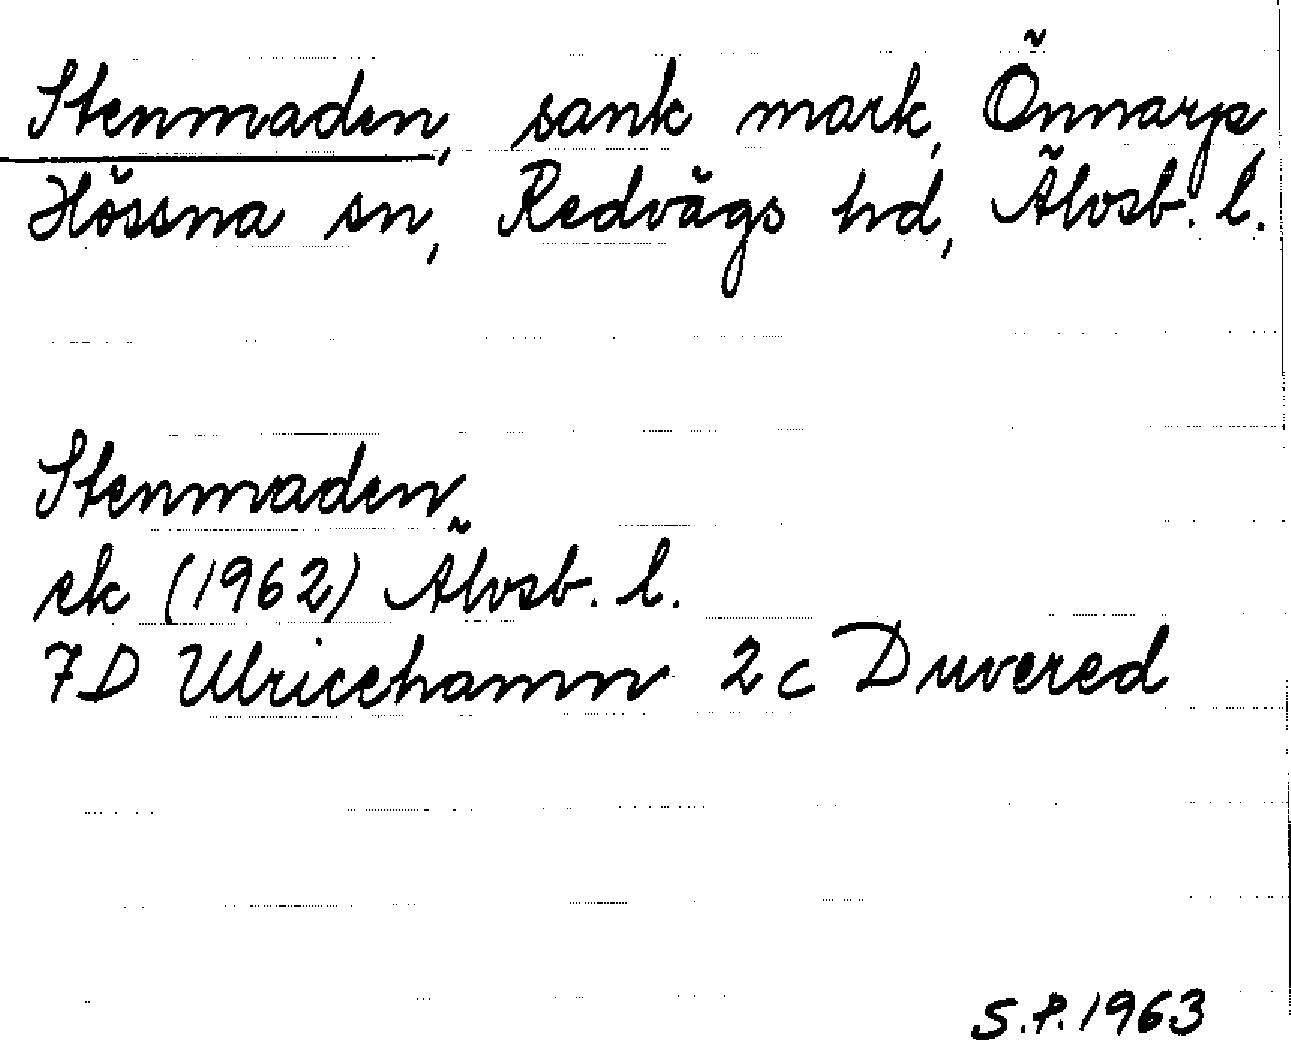 Stenmaden, sank mark, Önnarp,
Hössna sn, Redvägs hd, Älvsb. l.
Stenmaden
ek (1962) Älvsb. l.
7D Ulricehamn 2c Duvered
S.P. 1963